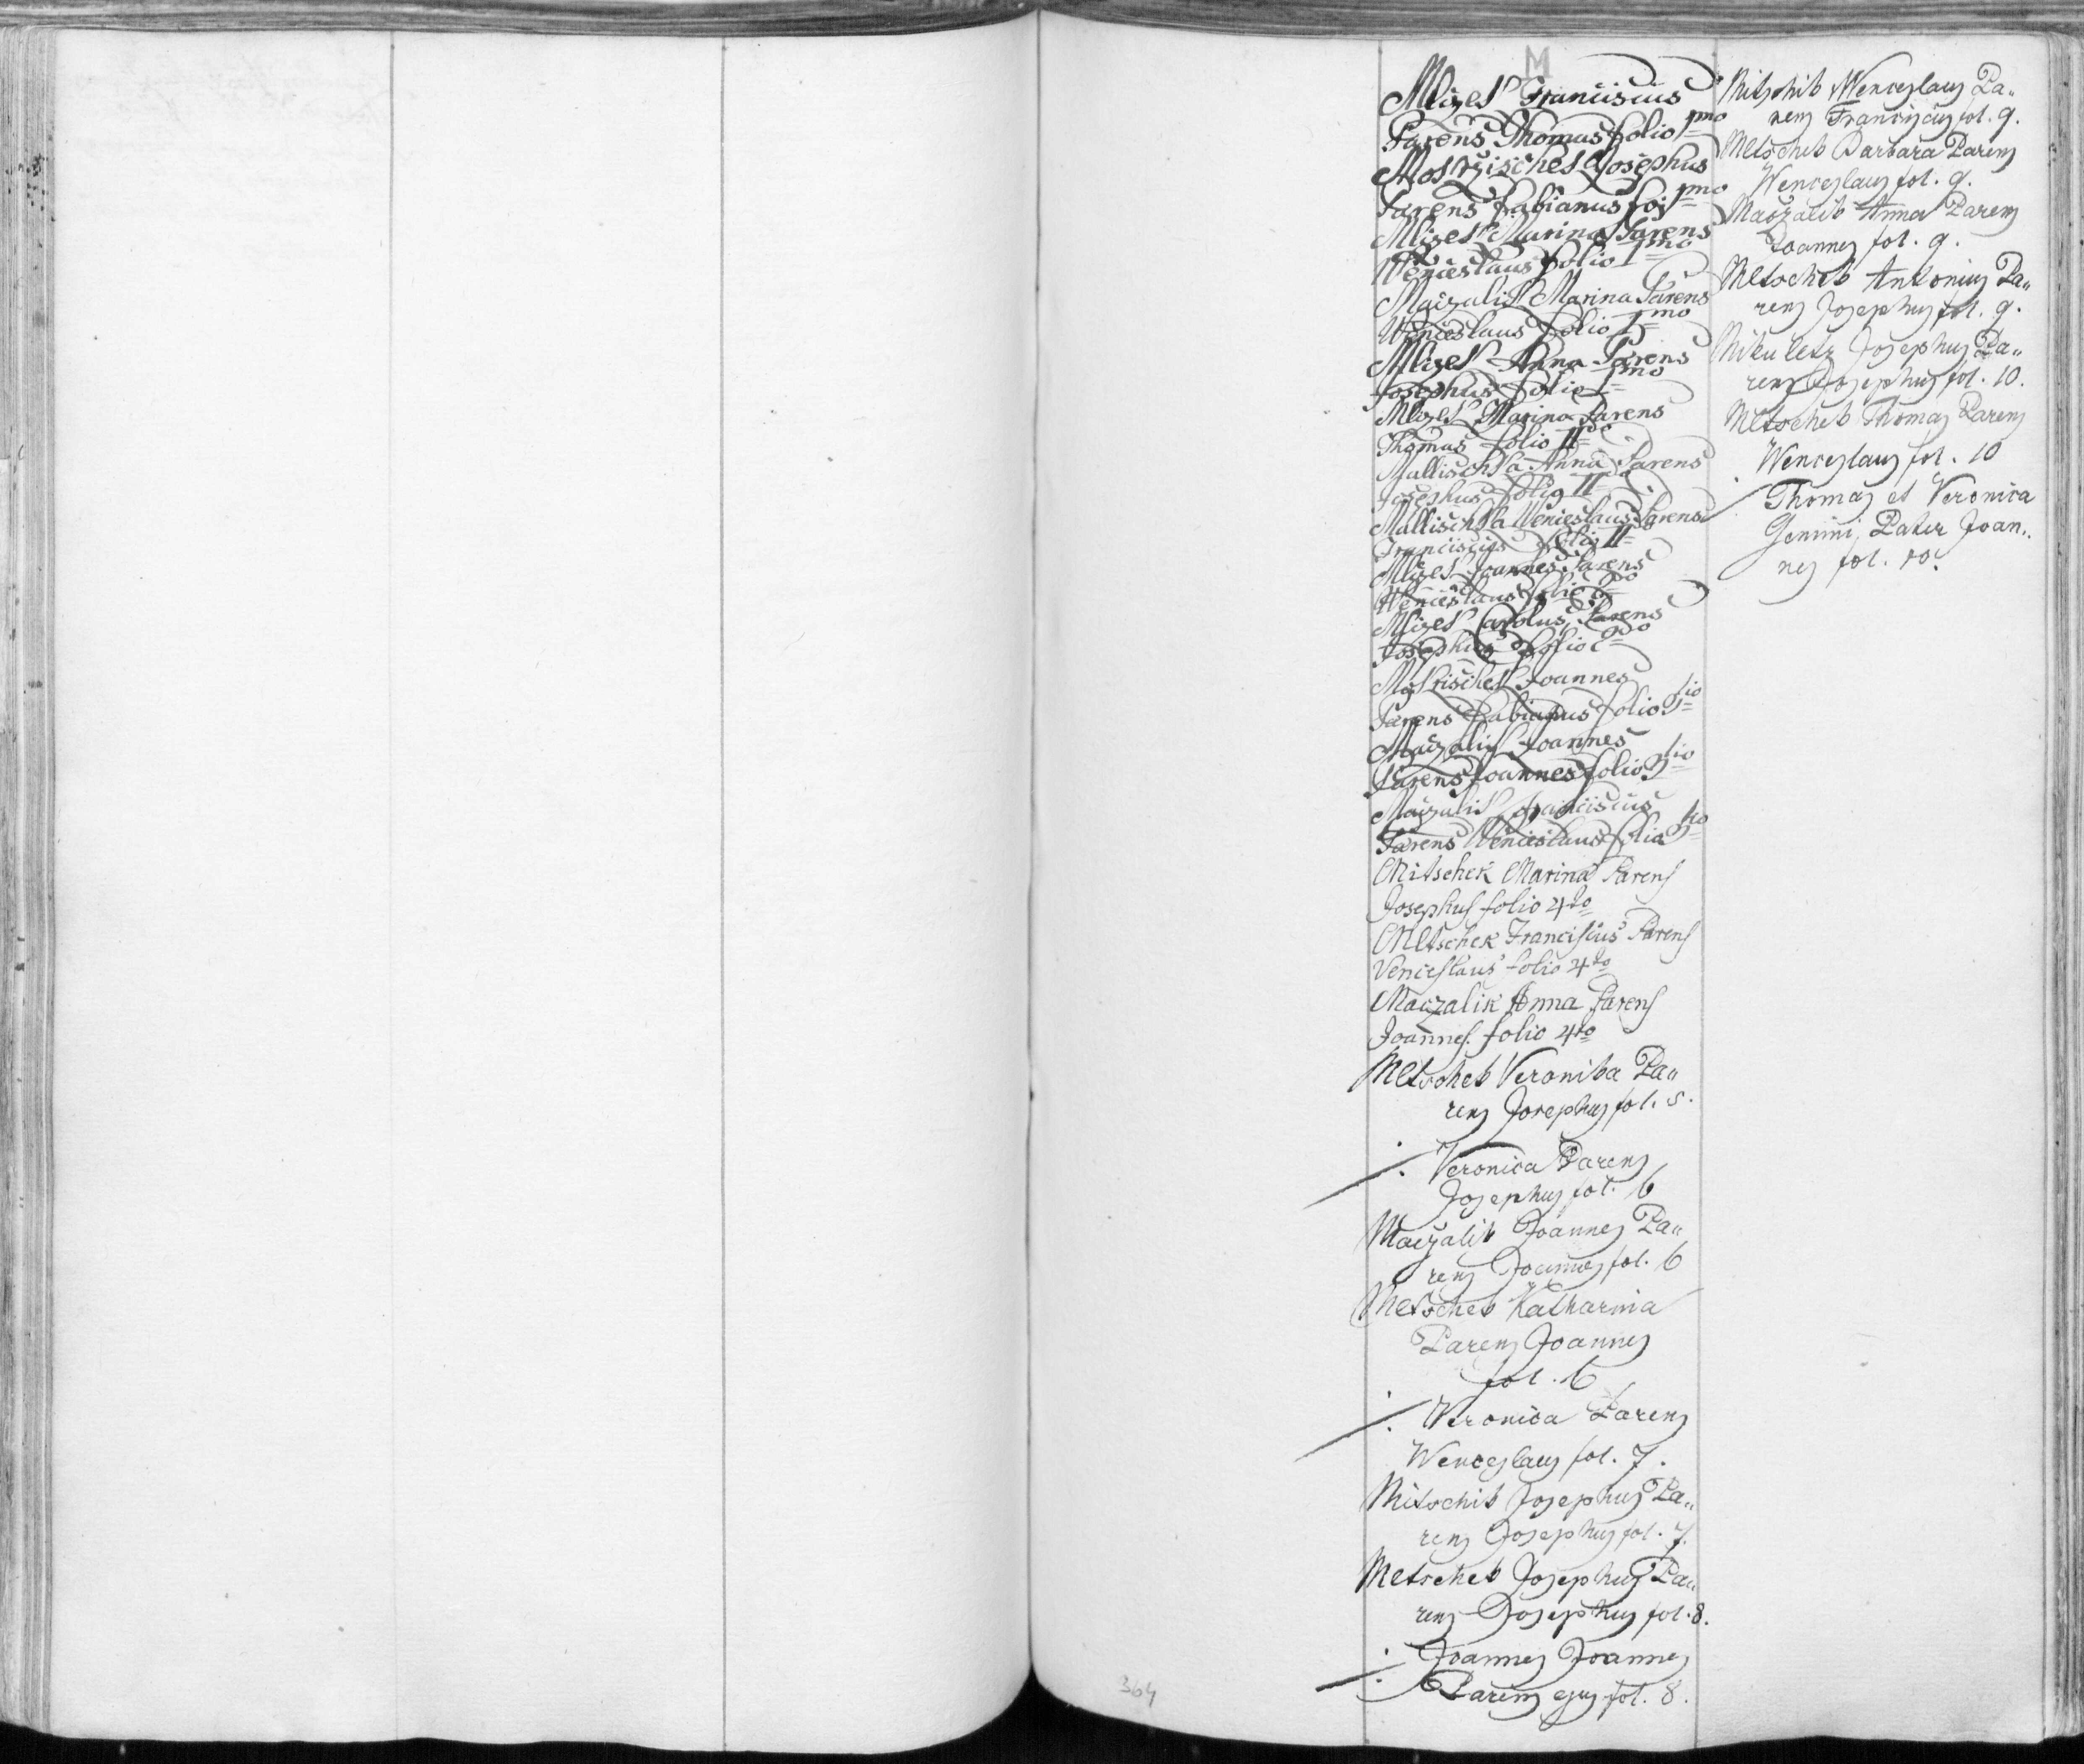 M
Mlčzek Franciscus
Parens Thomas folio 1mo
Mostržischek Josephus
Parens Fabianus foi 1mo
Mlčzek Marina Parens
Wenceslaus folio 1mo
Maczalik Marina Parens
Wenceslaus folio 1mo
Mlčzek Anna Parens
Josephus folio 1mo
Mlčzek Marina Parens
Thomas folio IIdo
Mallischka Anna Parens
Josephus folio II
Mallischka Wenceslaus Parens
Franciscus folio II
Mlčzek Joannes Parens
Wenceslaus folio 2do
Mlčzek Carolus Parens
Josephus folio 2do
Joannes
Parens Fabianus folio 3tio
Maczalik Joannes
Parens Joannes folio 3tio
Maczalik Franciscus
Parens Wenceslaus folio 3tio
Mitschek Marina Parens
Josephus folio 4to
Mltschek Franciscus Parens
Venceslaus folio 4to
Maczalik Anna Parens
Joannes folio 4to
Mltschek Veronika Pa„
rens Josephus fol. 5.
⁒ Veronica Parens
Josephus fol. 6
Maczalik Joannes Pa„
rens Joannes fol. 6
Mltschek Katharina
Parens Joannes
fol. 6
⁒ Veronica Parens
Wenceslaus fol. 7.
Mitschik Josephus Pa„
rens Josephus fol. 7.
Mltschek Josephus Pa„
rens Josephus fol. 8.
⁒ Joannes Joannes
Parens ejus fol. 8.
Mitschik Wenceslaus Pa„
rens Franciscus fol. 9.
Mltschek Barbara Parens
Wenceslaus fol. 9.
Maczalik Anna Parens
Joannes fol. 9.
Mltschek Antonius Pa„
rens Josephus fol. 9.
Mikuletz Josephus Pa„
rens Josephus fol. 10.
Mltschek Thomas Parens
Wenceslaus fol. 10
⁒ Thomas et Veronica
Gemini, Pater Joan„
nes fol. 10.
364